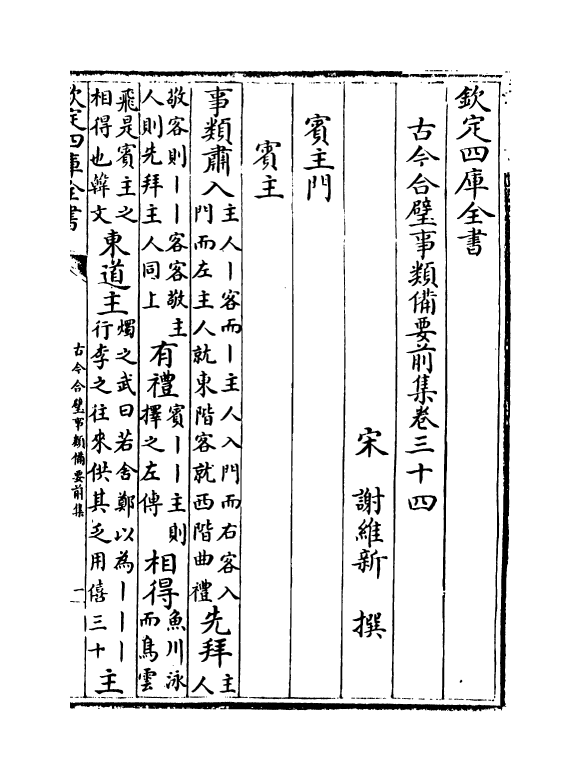 欽定四庫全書
古今合璧事類備要前集卷三十四
宋　謝維新　撰
賓主門
賓主
事類肅入主人丨客而丨主人入門而右客入門而左主人就東階客就西階曲禮先拜主人
敬客則丨丨客客敬主人則先拜主人同上有禮賓丨丨主則擇之左傳相得魚川泳而鳥雲
飛是賓主之相得也韓文東道主燭之武曰若舍鄭以為丨丨丨行李之往來供其乏用僖三十主
欽定四庫全書
古今合璧事類備要前集
一